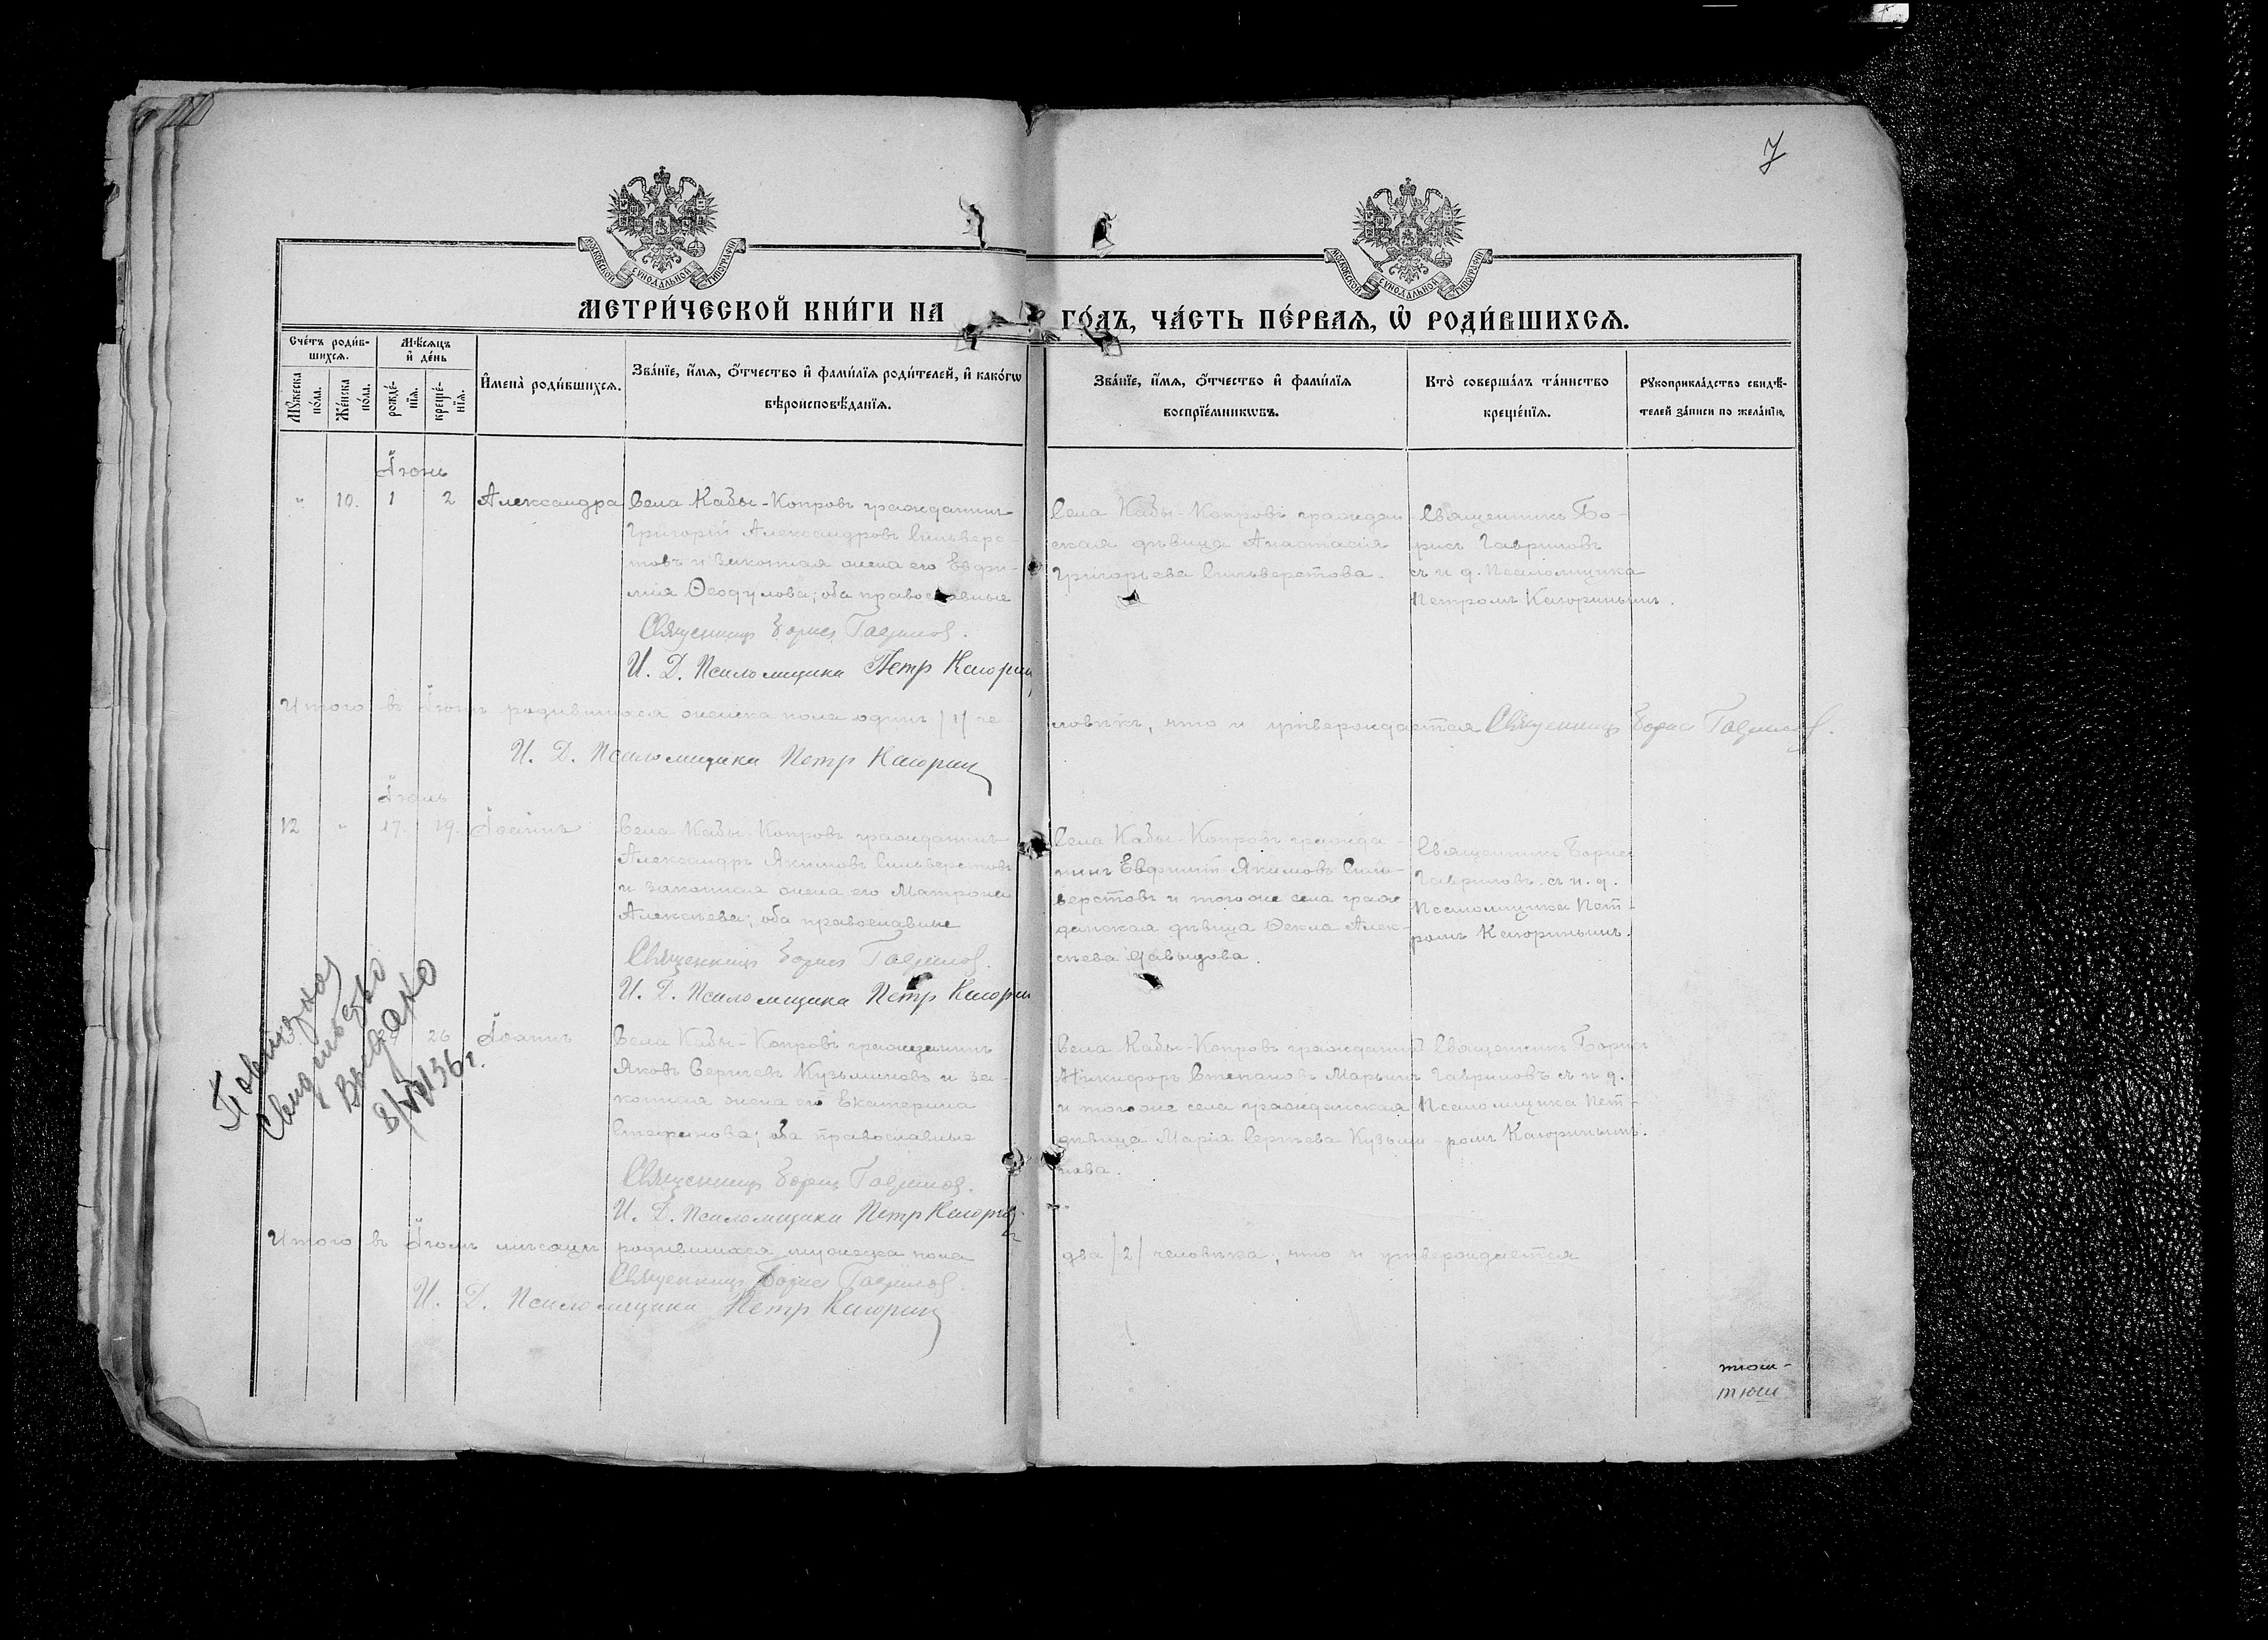 7
МОСКОВСКОЙ СУНОДАЛЬНОЙ ТИПОГРАФІИ
МОСКОВСКОЙ СУНОДАЛЬНОЙ ТИПОГРАФІИ
МЕТРИ́ЧЕСКОЙ КНИ́ГИ НА ГО́ДЪ, ЧА́СТЬ ПЕ́РВАЯ, Ѡ҆ РОДИ́ВШИХСЯ.
Сче́тъ роди́в-
шихся.
Мѣ́сяцъ
и҆ де́нь
Мꙋ́жеска по́ла.
Же́нска по́ла.
рожде́-
нїѧ.
креще́-
нїѧ.
И҆мена̀ роди́вшихся.
Зва́нїе, и҆́мя, ѻ҆́тчество и҆ фами́лїя роди́телей, и҆ како́гѡ
вѣроисповѣ́данїя.
Зва́нїе, и҆́мя, ѻ҆́тчество и҆ фами́лїя
воспрїе́мникѡвъ.
Кто̀ соверша́лъ та́инство
креще́нїя.
Рꙋкоприкла́дство свидѣ́-
телей за́писи по жела́нїю.
Іюнь
" 10. 1 2 Александра
Села Кабы-Копровъ гражданинъ
Григорій Александровъ Сильверс-
товъ и законная жена его Евфи-
мія Ѳеодулова; оба православные
Священникъ Борисъ Гаврилов.
И. Д. Псаломщика Петр
Села Кабы-Копровъ граждан
ская дѣвица Анастасія
Григорьева Сильверстова.
Священникъ Бо-
рисъ Гавриловъ
съ и д. псаломщика
Петромъ
Итого въ Іюнѣ родившихся женска пола одинъ /1/ че
ловѣкъ, что и утверждается Священникъ Борис Гаврилов.
И. Д. Псаломщика Петр
Іюль
12 " 17. 19. Іоаннъ
Села Кабы-Копровъ гражданинъ
Александръ Якимовъ Сильверстовъ
и законная жена его Матрона
Алексѣева; оба православные
Священникъ Борис Гаврилов.
И. Д. Псаломщика Петр
Села Кабы-Копровъ гражда-
нинъ Евфимій Якимовъ Силь-
верстовъ и того же села граж
данская дѣвица Ѳекла Алек-
сѣева Давыдова.
Священникъ Борисъ
Гавриловъ съ и. д.
Псаломщика Пет-
ромъ
Повторное
свидетельство
выдано
8/VI 36 г.
26 Іоаннъ
Села Кабы-Копровъ гражданинъ
Яковъ Сергѣевъ Кузьминовъ и за-
конная жена его Екатерина
Стефанова; оба православные
Священникъ Борис Гаврилов.
И. Д. Псаломщика Петр
Села Кабы-Копровъ гражданинъ
Никифоръ Степановъ Марьинъ
и того же села гражданская
дѣвица Марія Сергѣева Кузьми-
нова.
Священникъ Борисъ
Гавриловъ съ и д.
Псаломщика Пет-
ромъ
Итого въ Іюлѣ мѣсяцѣ родившихся мужеска пола
два /2/ человѣка, что и утверждается
Священникъ Борис Гаврилов.
И. Д. Псаломщика Петр